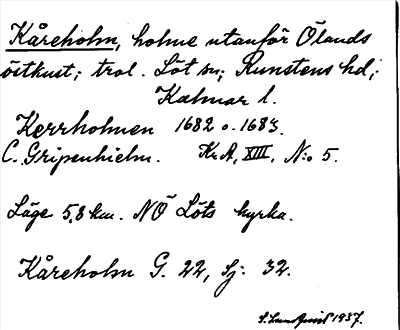 Kåreholm, holme utanför Ölands
östkust; trol. Löt sn; Runstens hd;
Kalmar l.
Kerrholmen 1682 o. 1683.
C. Gripenhielm. Kr.A, XIII, N:o 5.
Läge 5,8 km. NÖ Löts kyrka.
Kåreholm G. 22, Sj: 32.
1937.